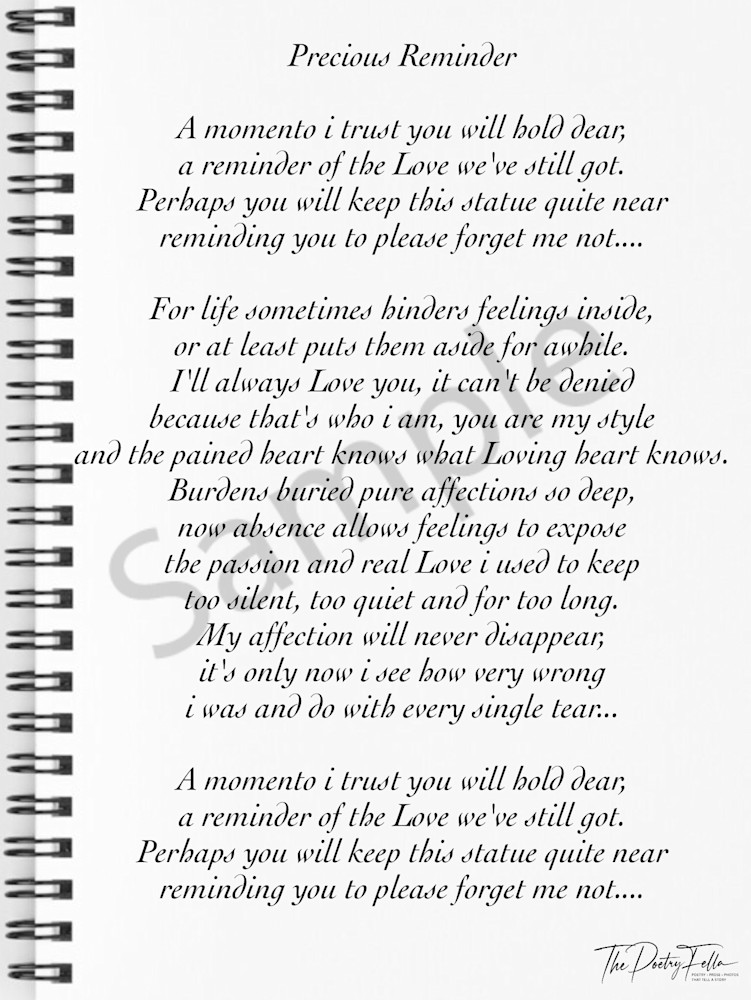 Precious Reminder
A momento i trust you will hold dear,
a reminder of the Love we've still got.
Perhaps you will keep this statue quite near
reminding you to please forget me not....
For life sometimes hinders feelings inside,
or at least puts them aside for awhile.
I'll always Love you, it can't be denied
because that's who i am, you are my style
and the pained heart knows what Loving heart knows.
Burdens buried pure affections so deep,
now absence allows feelings to expose
the passion and real Love i used to keep
too silent, too quiet and for too long.
My affection will never disappear,
it's only now i see how very wrong
i was and do with every single tear...
A momento i trust you will hold dear,
a reminder of the Love we've still got.
Perhaps you will keep this statue quite near
reminding you to please forget me not....
Sample
The Poetry Fella
POETRY • PROSE • PHOTOS
THAT TELL A STORY